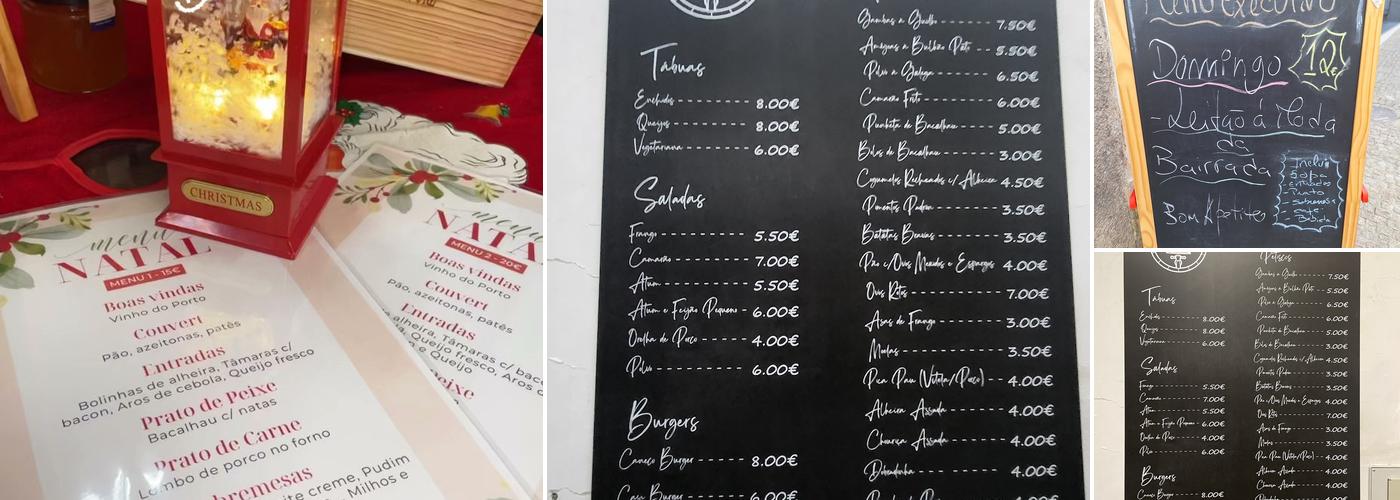 CHRISTMAS
menu
NATAL
MENU 1 - 15€
Boas vindas
Vinho do Porto
Couvert
Pão, azeitonas, patês
Entradas
Bolinhas de alheira, Tâmaras c/
bacon, Aros de cebola, Queijo fresco
Prato de Peixe
Bacalhau c/ natas
Prato de Carne
Lombo de porco no forno
bremesas
ite creme, Pudim
Milhos e
menu
NATA
MENU 2 - 20€
Boas vindas
Vinho do Porto
Couvert
Pão, azeitonas, patês
Entradas
alheira, Tâmaras c/ baco
Queijo fresco, Aros d
e Queijo
Peixe
Tábuas
Enchidos 8.00€
Queijos 8.00€
Vegetariana 6.00€
Saladas
Frango 5.50€
Camarão 7.00€
Atum 5.50€
Atum e Feijão Pequeno 6.00€
Orelha de Porco 4.00€
Polvo 6.00€
Burgers
Caneco Burger 8.00€
Burger 6.00€
Gambas a Guilho 7.50€
Ameijoas a Bulhão Pato 5.50€
Polvo a Galega 6.50€
Camarão Frito 6.00€
Punheta de Bacalhau 5.00€
Bolos de Bacalhau 3.00€
Cogumelos Recheados c/ Alheira 4.50€
Pimentos Padron 3.50€
Batatas Bravas 3.50€
Pão c/Ovos Mexidos e Espargos 4.00€
Ovos Rotos 7.00€
Asas de Frango 3.00€
Moelas 3.50€
Pica Pau (Vitela/Porco) 4.00€
Alheira Assada 4.00€
Chouriça Assada 4.00€
4.00€
Menu Executivo
Domingo 12€
- Leitão á Moda
da
Bairrada
Bom Apetite
Inclui
Sopa
- entradas
- Prato
- sobremesa
- café
Bebida
Tábuas
Enchidos 8.00€
Queijos 8.00€
Vegetariana 6.00€
Saladas
Frango 5.50€
Camarão 7.00€
Atum 5.50€
Atum e Feijão Pequeno 6.00€
Orelha de Porco 4.00€
Polvo 6.00€
Burgers
Caneco Burger 8.00€
Petiscos
Gambas a Guilho 7.50€
Ameijoas a Bulhão Pato 5.50€
Polvo a Galega 6.50€
Camarão Frito 6.00€
Punheta de Bacalhau 5.00€
Bolos de Bacalhau 3.00€
Cogumelos Recheados c/ Alheira 4.50€
Pimentos Padron 3.50€
Batatas Bravas 3.50€
Pão c/Ovos Mexidos e Espargos 4.00€
Ovos Rotos 7.00€
Asas de Frango 3.00€
Moelas 3.50€
Pica Pau (Vitela/Porco) 4.00€
Alheira Assada 4.00€
Chouriça Assada 4.00€
4.00€